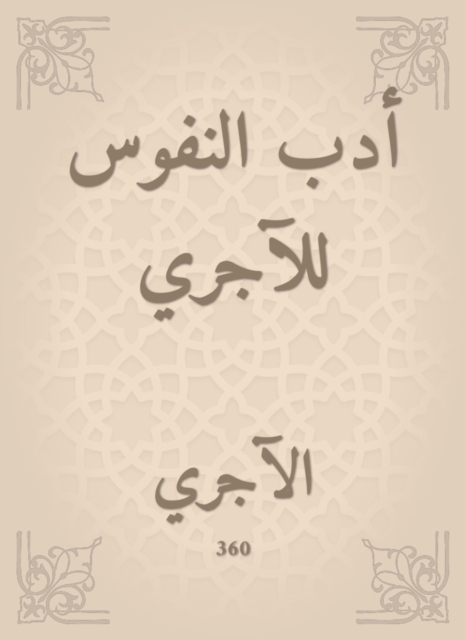 أدب النفوس
للآجري
الآجري
360